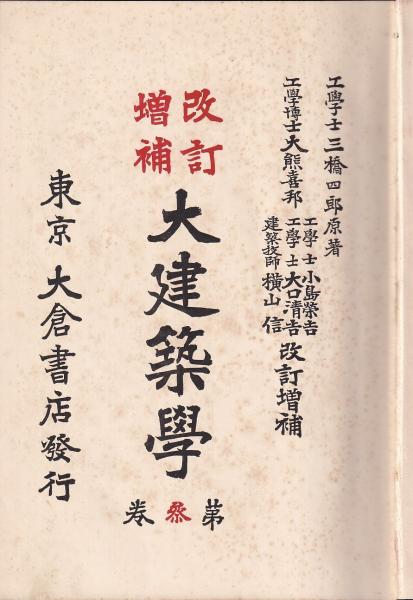 工學士三橋四郎原著
工學博士大熊喜邦
工學士小島榮吉
工學士大口清吉
建築技師横山信
改訂増補
改訂
増補
大建築學
第叄卷
東京 大倉書店發行